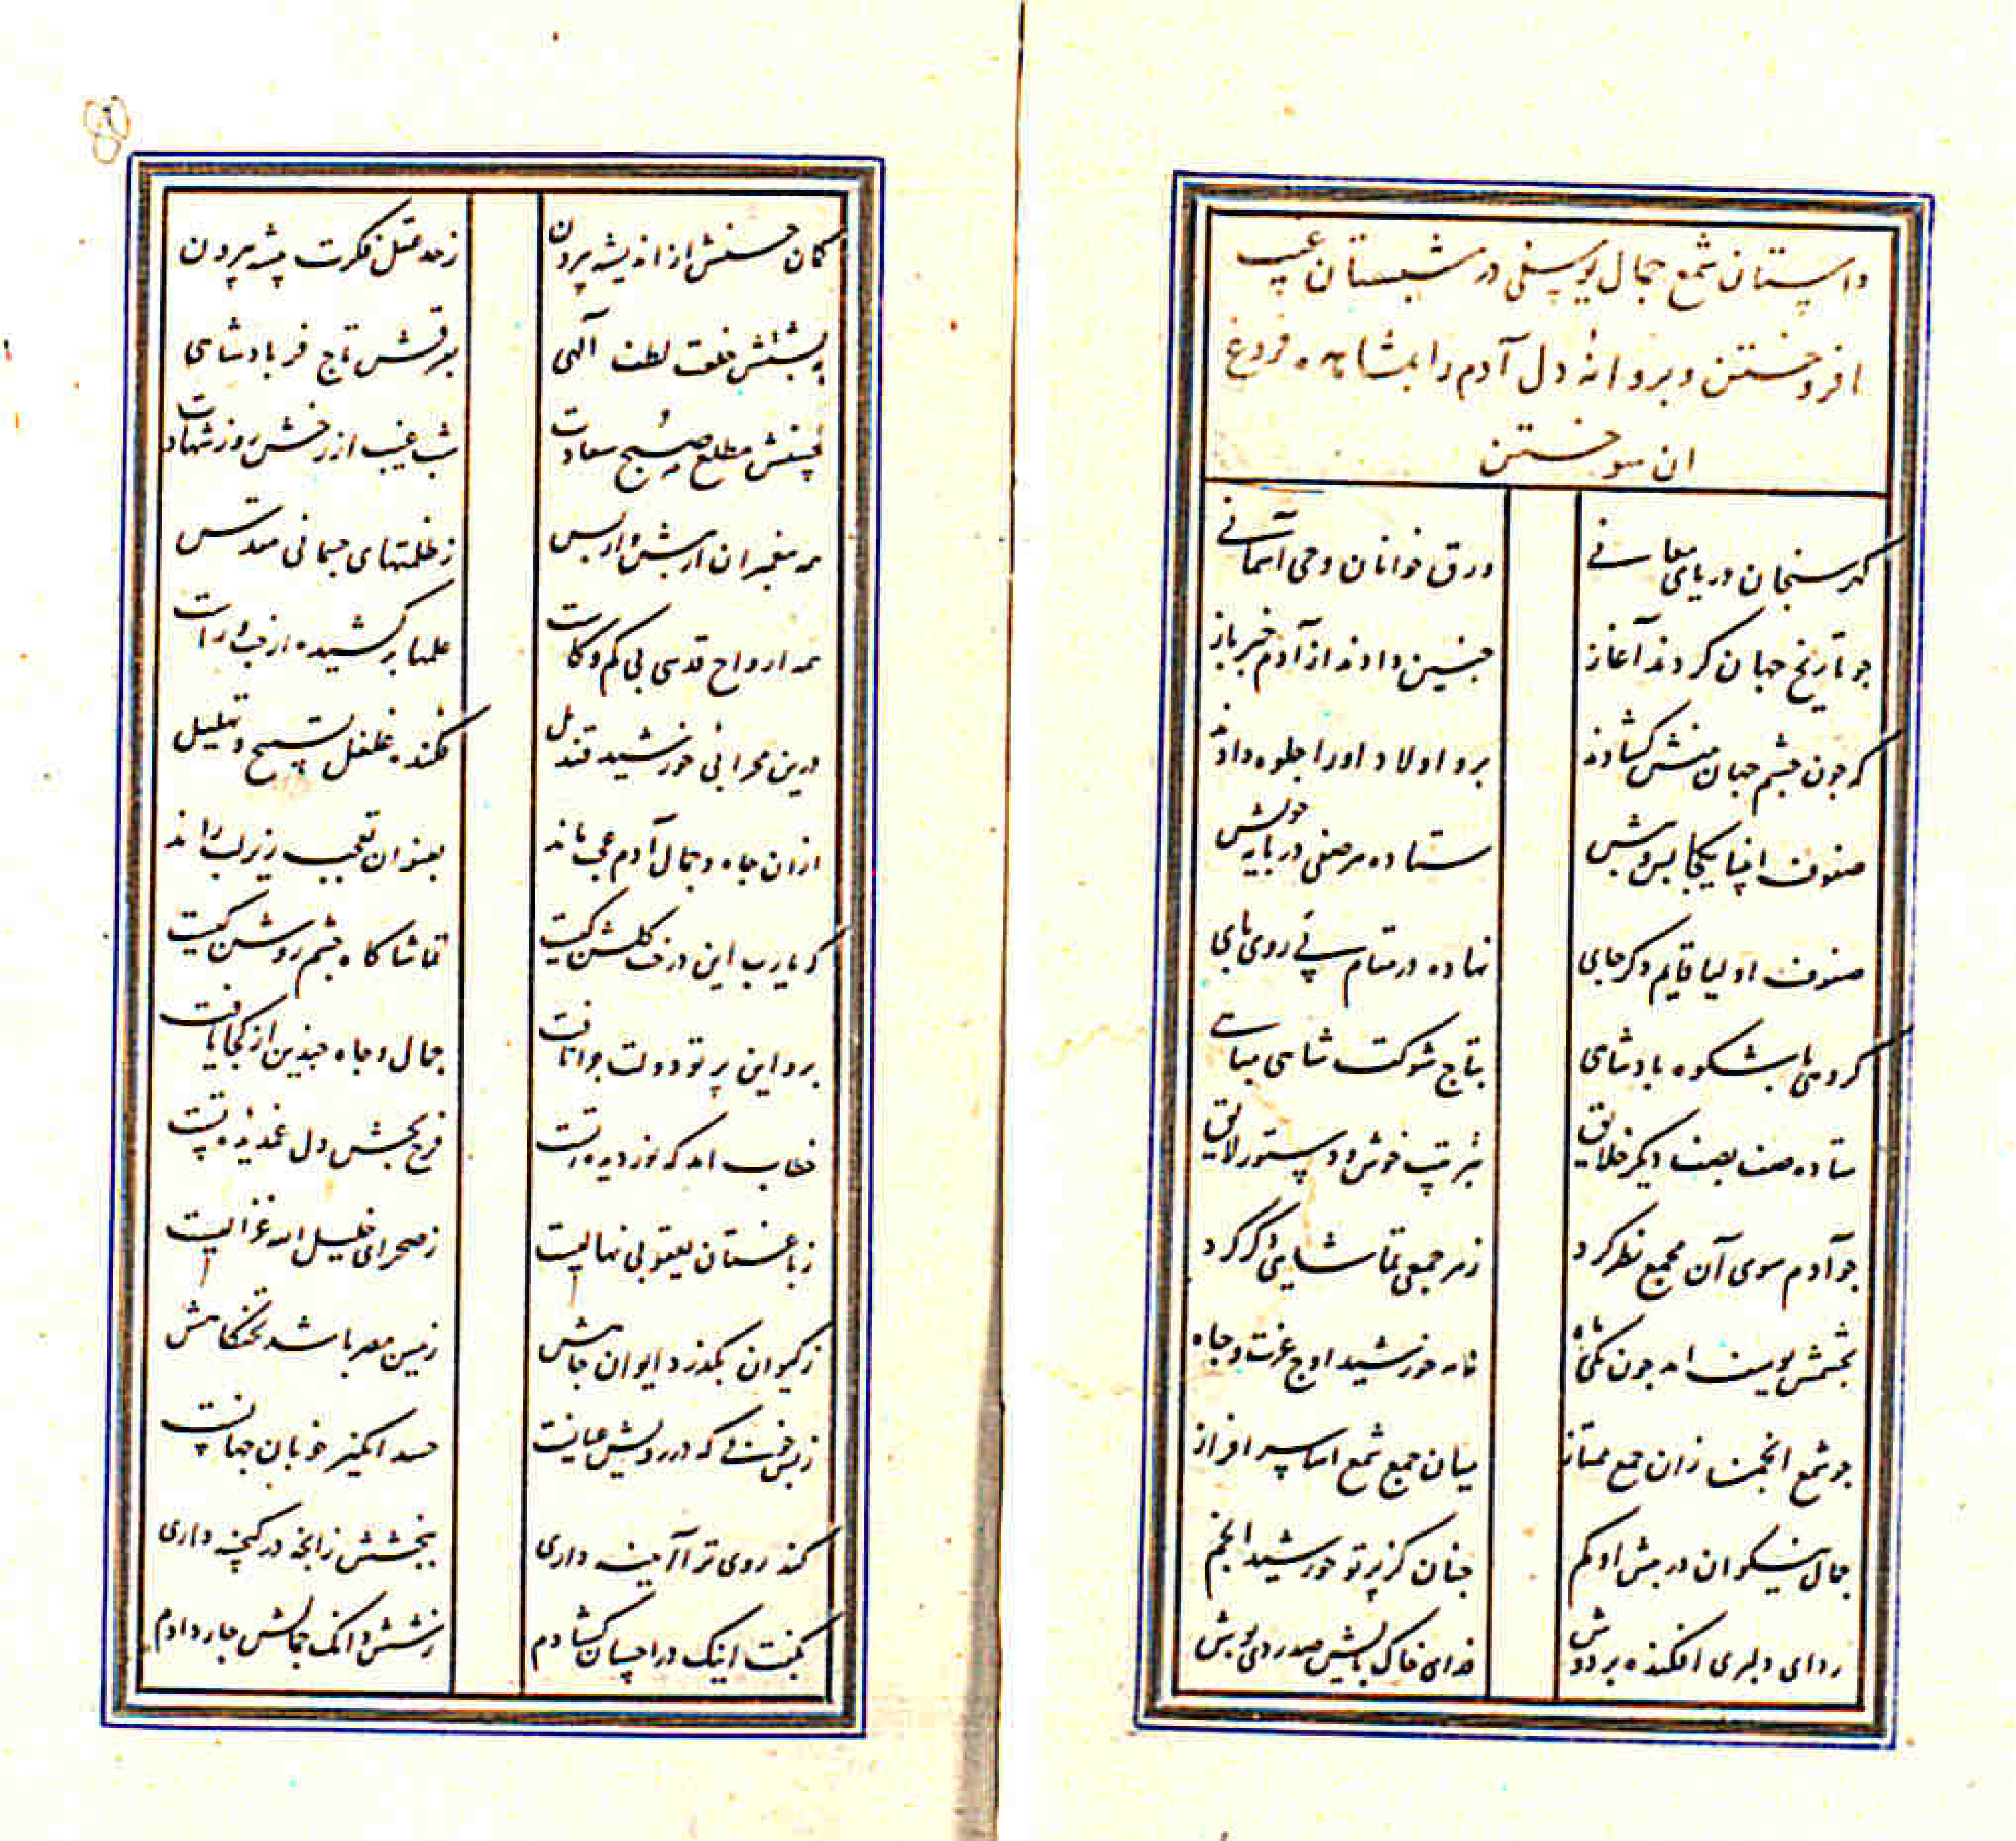 داستان شمع جمال یوسفی در شبستان غیب
افروختن و پروانهٔ دل آدم را بمشاهده فروغ
ان سوختن
گهر سنجان دریای معانی ورق خوانان وحی آسمانی
چو تاریخ جهان کردند آغاز چنین دادند از آدم خبر باز
که چون چشم جهان بینش گشادند برو اولاد او را جلوه دادند
صفوف انبیا یکجا پس و پیش ستاده هر صفی در پایه خویش
صفوف اولیا قایم دگر جای نهاده در مقام پی روی پای
گروهی با شکوه پادشاهی بتاج شوکت شاهی مباهی
ستاده صف بصف دیگر خلایق بترتیب خوش و دستور لایق
چو آدم سوی آن مجمع نظر کرد ز هر جمعی تماشایی دگر کرد
بچشمش یوسف امد چون یکی ماه نه مه خورشید اوج عزت و جاه
چو شمع انجمن زان جمع ممتاز میان جمع شمع اسا سر افراز
جمال نیکوان در پیش او گم چنان کز پرتو خورشید انجم
ردای دلبری افکنده بر دوش فدای خاک پایش صد ردی پوش
کمال حسنش از اندیشه بیرون ز حد عقل فکرت پیشه بیرون
به پشتش خلعت لطف آلهی بفرقش تاج فر پادشاهی
جبینش مطلع صبح سعادت شب غیب از رخش روز شهادت
همه پیغمبران از پیش و از پس ز ظلمتهای جسمانی مقدس
همه ارواح قدسی بی کم و کاست علمها برکشیده از چپ و راست
درین محرابی خورشید قندیل فکنده غلغل تسبیح و تهلیل
ازان جاه و جمال آدم عجب ماند بعنوان تعجب زیر لب راند
که یارب این درخت گلشن کیست تماشا گاه چشم روشن کیست
برو این پرتو دولت چرا تافت جمال و جاه چندین از کجا یافت
خطاب امد که نور دیده تست فرح بخش دل غمدیده تست
ز باغستان یعقوبی نهالیست ز صحرای خلیل الله غزالیست
ز کیوان بگذرد ایوان جاهش زمین مصر باشد تختگاهش
ز بس خوبی که در رویش عیانست حسد انگیز خوبان جهانست
کند روی ترا آیینه داری ببخشش زانچه در گنجینه داری
بگفت اینک در احسان گشادم ز شش دانگ جمالش چار دادم